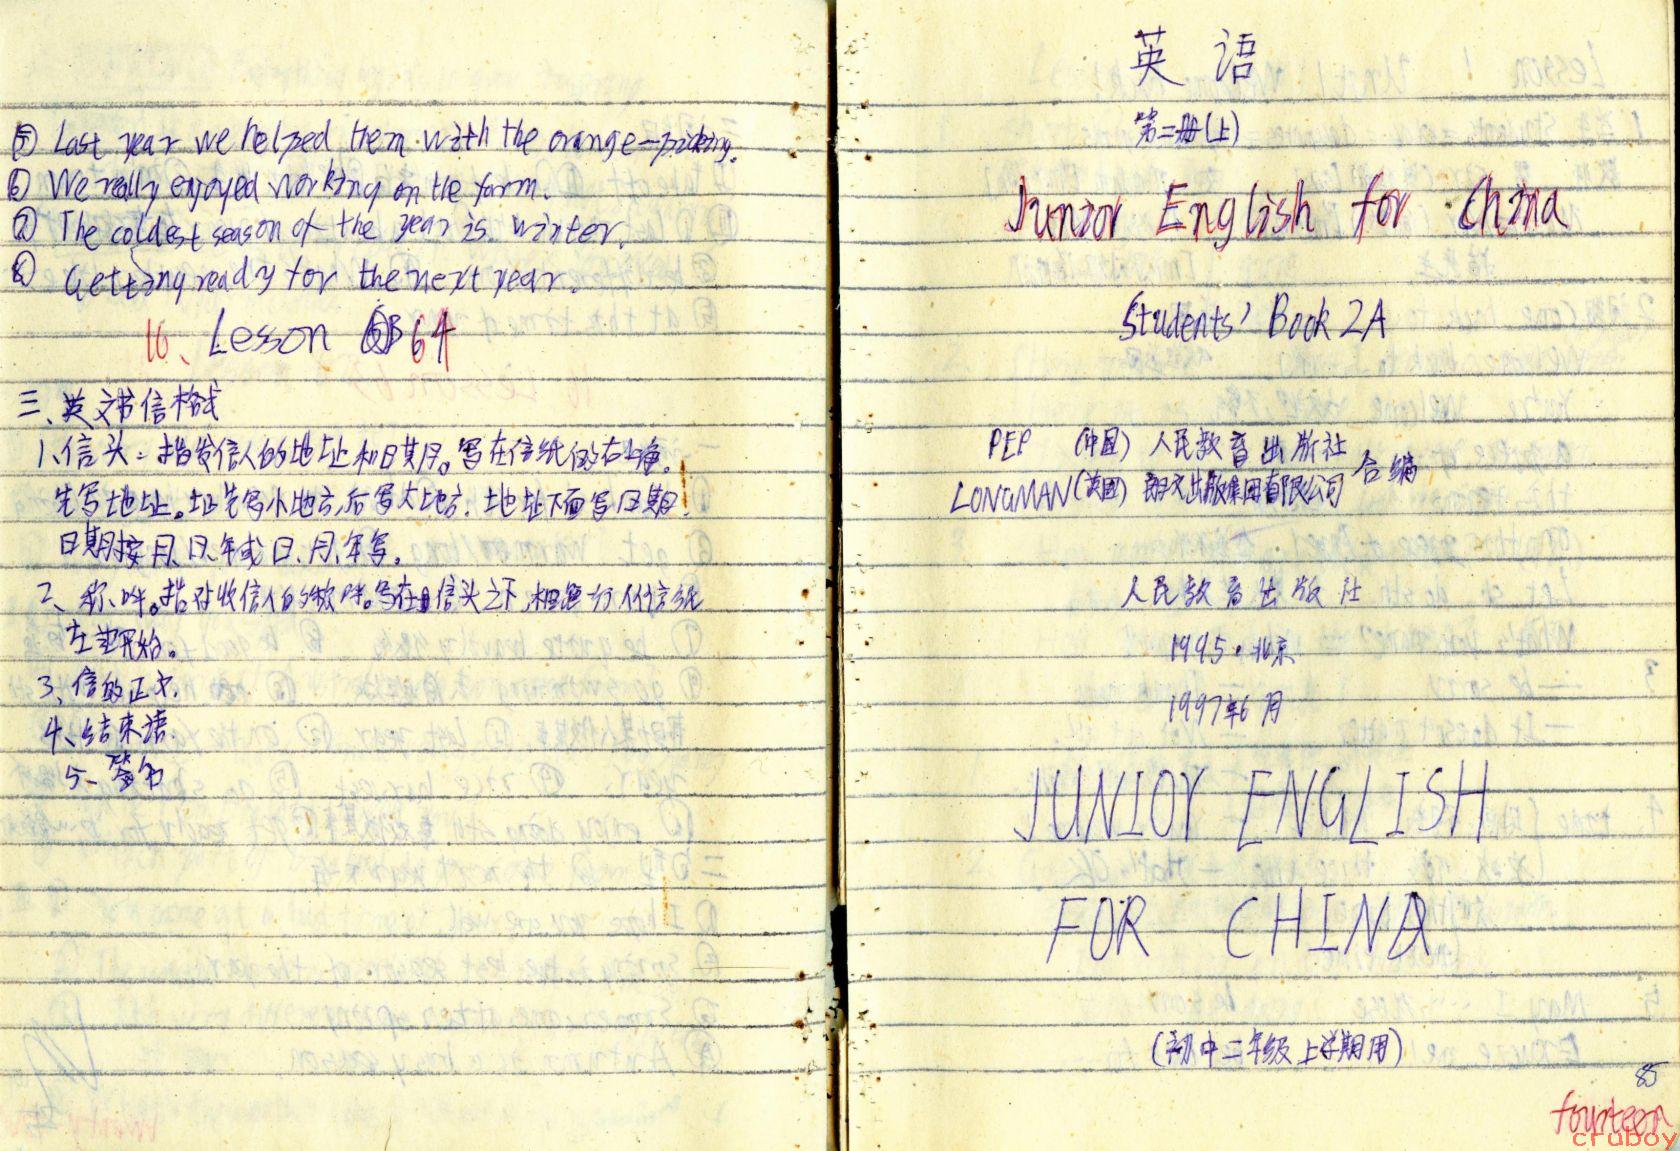 ⑤ Last year we helped them with the orange-picking.
⑥ We really enjoyed working on the farm.
⑦ The coldest season of the year is winter.
⑧ Getting ready for the next year.
16、Lesson 64
三、英文书信格式
1、信头：指发信人的地址和日期。写在信纸的右上角。
先写地址。先写小地方,后写大地方.地址下面写日期!
日期按月、日、年或日、月、年写。
2、称呼。指对收信人的称呼。写在信头之下,相隔一行从信纸
左边开始。
3、信的正文.
4、结束语.
5、签名
英语
第二册(上)
Junior English for China
Students' Book 2A
PEP (中国) 人民教育出版社
LONGMAN(英国) 朗文出版集团有限公司 合编
人民教育出版社
1995·北京
1997年6月
JUNIOY ENGLISH
FOR CHINA
(初中二年级上学期用)
85
fourteen
cruboy